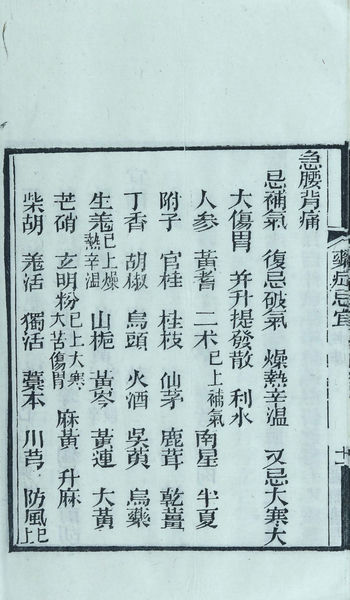 急腰背痛
忌補氣 復忌破氣 燥熱辛溫 又忌大寒大
大傷胃 并升提發散 利水
人參 黃耆 二术已上補氣 南星 半夏
附子 官桂 桂枝 仙茅 鹿茸 乾薑
丁香 胡椒 烏頭 火酒 吳萸 烏藥
生羗已上燥熱辛溫 山梔 黃岑 黃連 大黃
芒硝 玄明粉已上大寒大苦傷胃 麻黃 升麻
柴胡 羗活 獨活 藁本 川芎 防風已上
藥症忌宜
十一